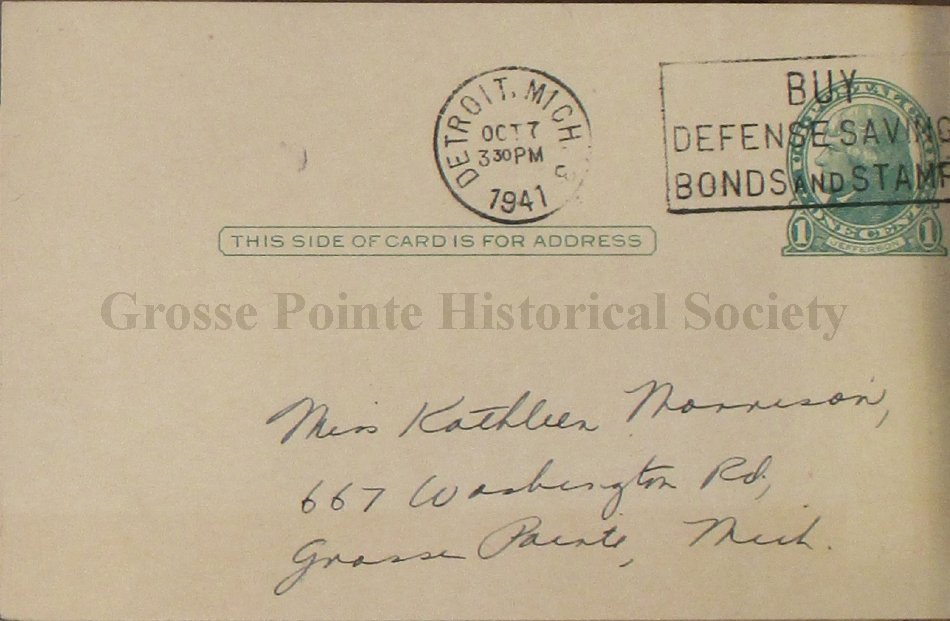 DETROIT, MICH.
OCT 7
3 30 PM
1941
BUY
DEFENSE SAVING
BONDS AND STAMP
1 ONE CENT 1
JEFFERSON
THIS SIDE OF CARD IS FOR ADDRESS
Grosse Pointe Historical Society
Miss Kathleen Morrison,
667 Washington Rd,
Grosse Pointe, Mich.